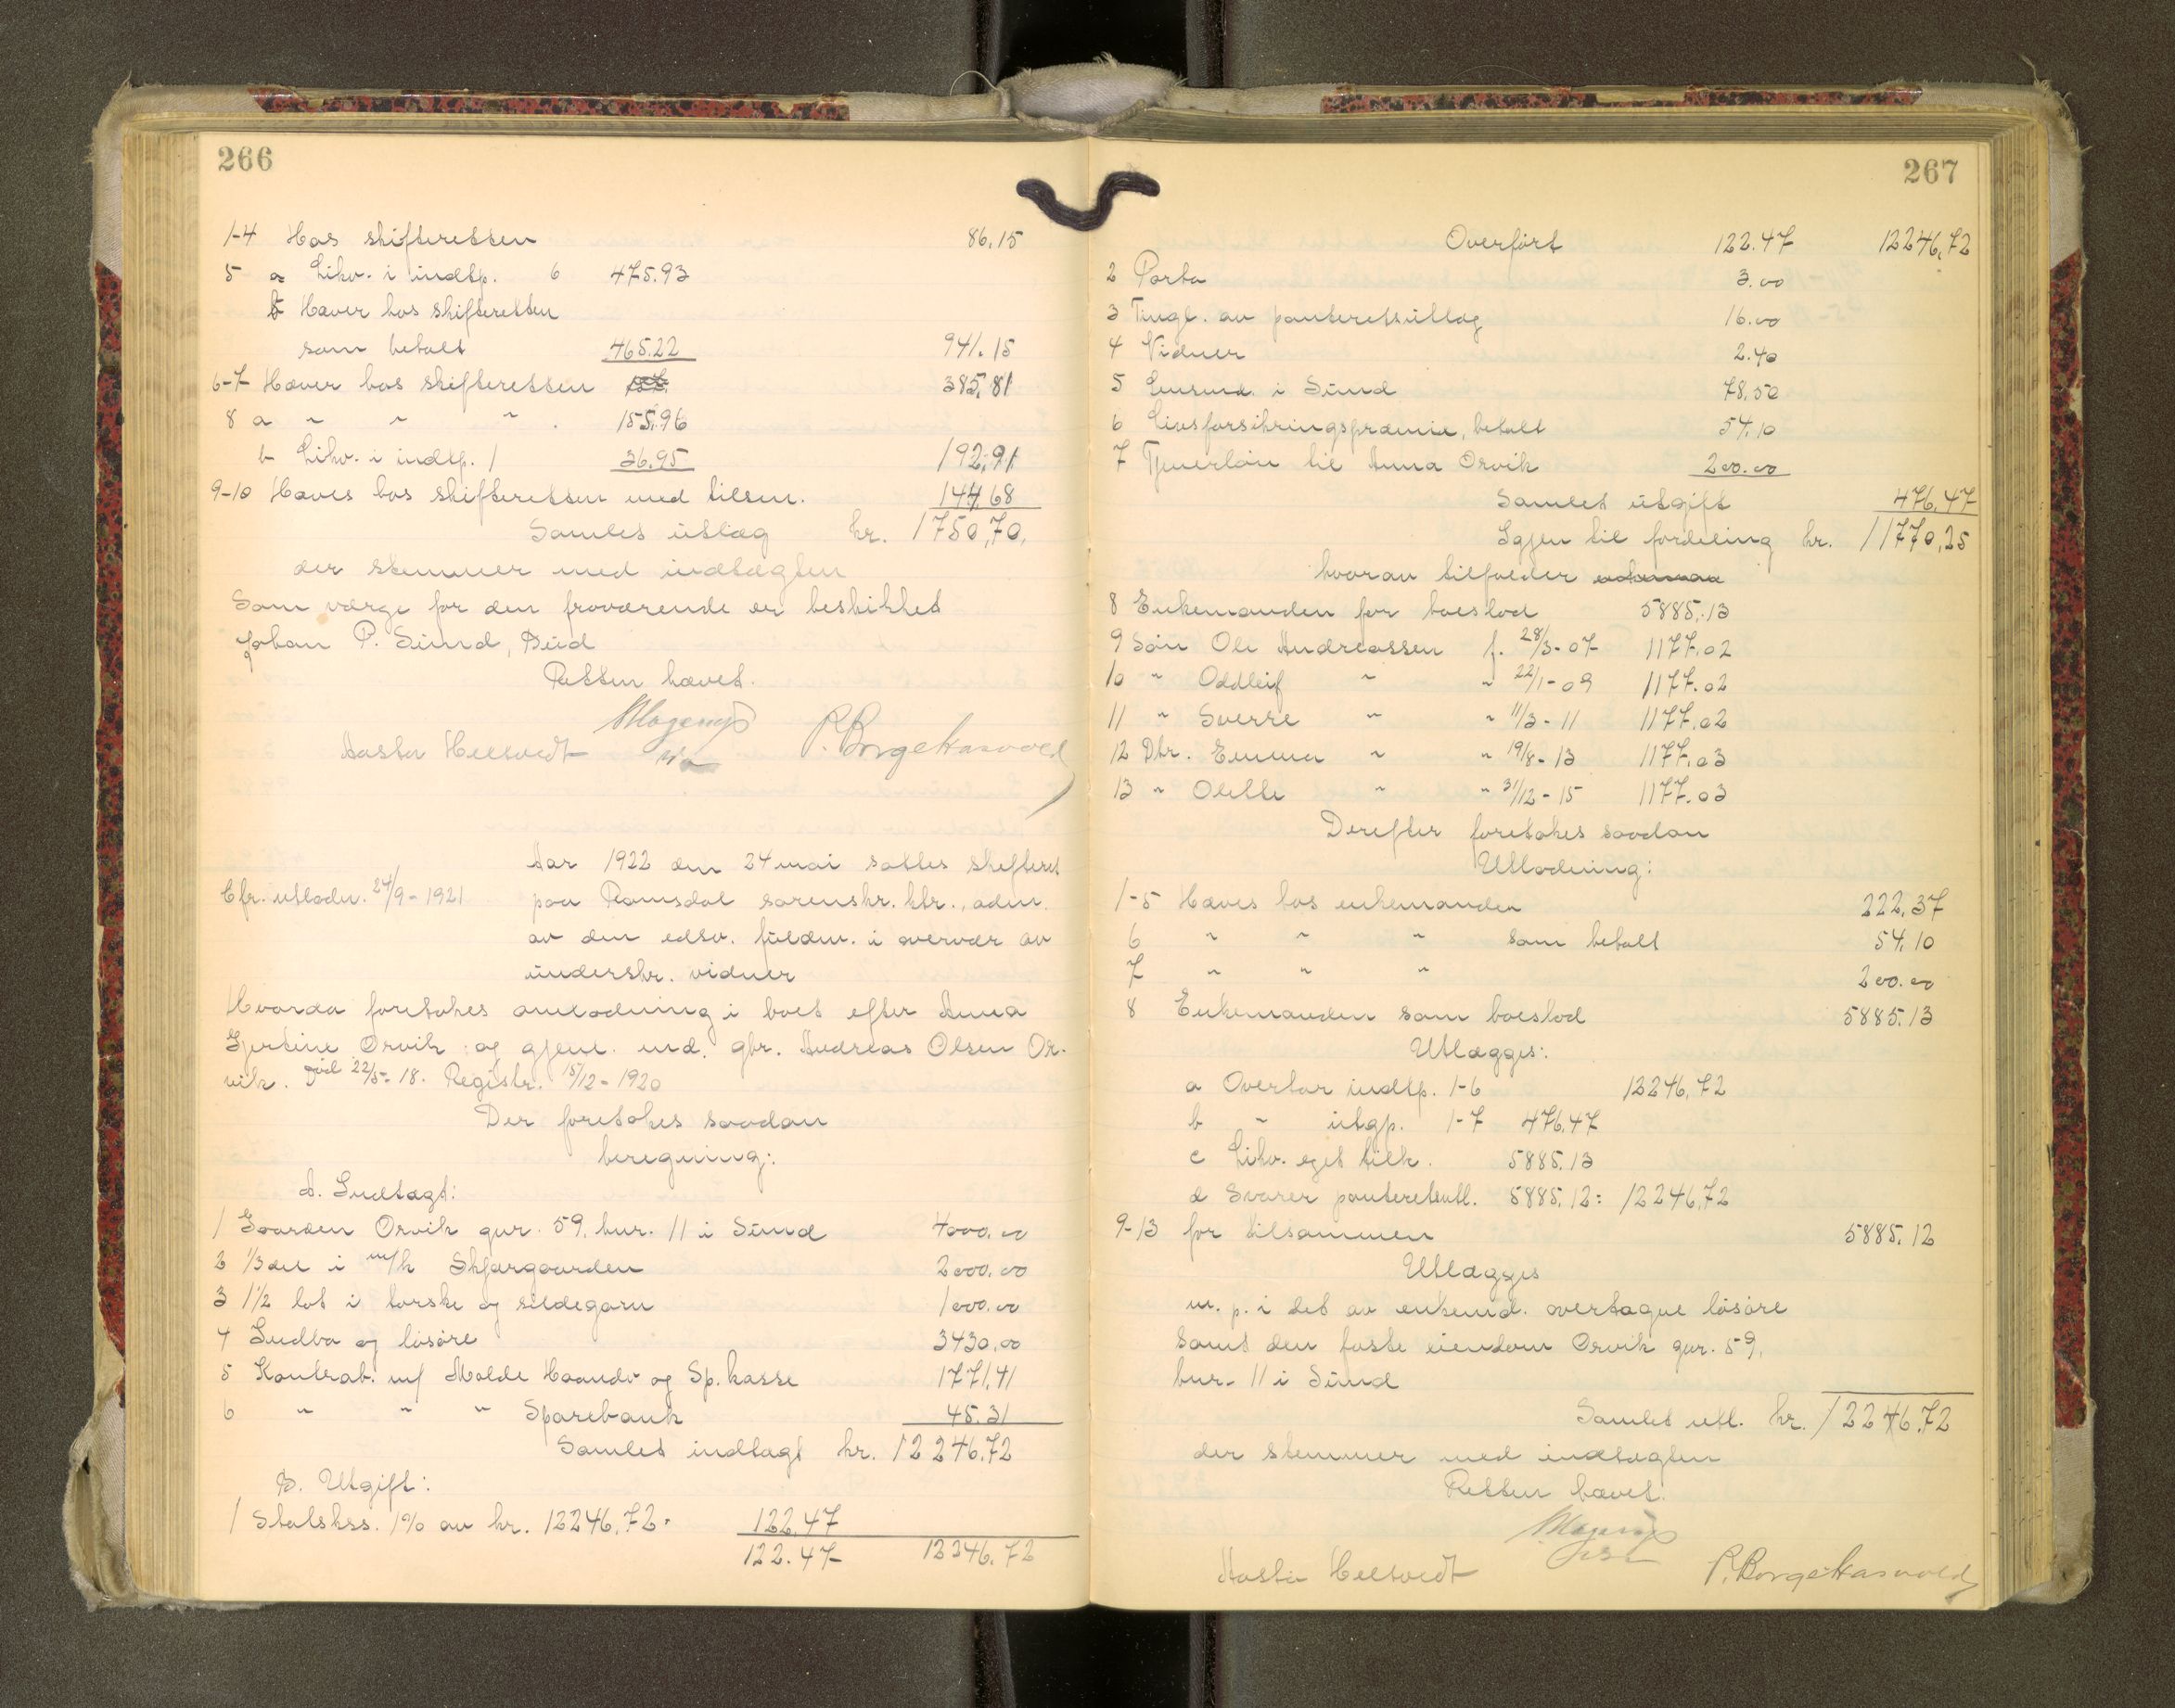 266
1-4 Hos skifteretten 86,15
5 a Likv. i indtp. 6 475.93
b Hæver hos skifteretten
som betalt 465.22 941.15
6-7 Hæver hos skifteretten 385,81
8 a " " " 155,96
b Likv. i indtp. 1 36,95 192,91
9-10 Hæves hos skifteretten med tilsm. 144,68
Samlet utlæg kr. 1750,70.
der stemmer med indtægten
Som værge for den fraværende er beskikket
Johan P. Sund, Bud
Retten hævet.
Aasta Heltvedt P. Borge Hasvold
Aar 1922 den 24 mai sattes skifteret
Cfr. utlodn. 24/9-1921 paa Romsdal sorenskr. ktr., adm.
av den edsv. fuldm. i overvær av
underskr. vidner
Hvorda foretokes omlodning i boet efter Anna
Gjertine Orvik og gjenl. md. gbr. Andreas Olsen Or-
vik. Død 22/5-18. Registr. 15/12-1920
Der foretokes saadan
beregning:
A. Indtægt:
1 Gaarden Orvik gnr. 59, bnr. 11 i Sund 4000.00
2 1/3 del i m/k Skjærgaarden 2000.00
3 1 1/2 lot i torske og sildegarn 1000.00
4 Indbo og løsøre 3430,00
5 Kontrab. m/ Molde Haandv og Sp.kasse 1771,41
6 " " " Sparebank 45.31
Samlet indtægt kr. 12246.72
B. Utgift:
1 Statskss. 1% av kr. 12246,72. 122.47
122.47 12246.72
267
Overført 122.47 12246,72
2 Porto 3.00
3 Tingl. av panteretsutlæg 16.00
4 Vidner 2.40
5 i Sund 78,50
6 Livsforsikringspræmie, betalt 54,10
7 Tjenerløn til Anna Orvik 200.00
Samlet utgift 476,47
Igjen til fordeling kr. 11770,25
hvorav tilfalder
8 Enkemanden for boeslod 5885,13
9 Søn Ole Andreassen f. 28/3-07 1177,02
10 " Oddleif " " 22/1-09 1177.02
11 " Sverre " " 11/3-11 1177,02
12 Dtr. Emma " " 19/8-13 1177,03
13 " Olette " " 31/12-15 1177.03
Derefter foretokes saadan
Utlodning:
1-5 Hæves hos enkemanden 222,37
6 " " " som betalt 54,10
7 " " " 200.00
8 Enkemanden som boeslod 5885.13
Utlægges:
a Overtar indtp. 1-6 12246,72
b " utgp. 1-7 476,47
c Likv. eget tilk. 5885.13
d Svarer panteretsutl. 5885.12: 12246,72
9-13 for tilsammen 5885.12
Utlægges
m. p. i det av enkemd. overtagne løsøre
samt den faste eiendom Orvik gnr. 59,
bnr. 11 i Sund
Samlet utl. kr. 12246.72
der stemmer med indtægten
Retten hævet.
Aasta Heltvedt P. Borge Hasvold